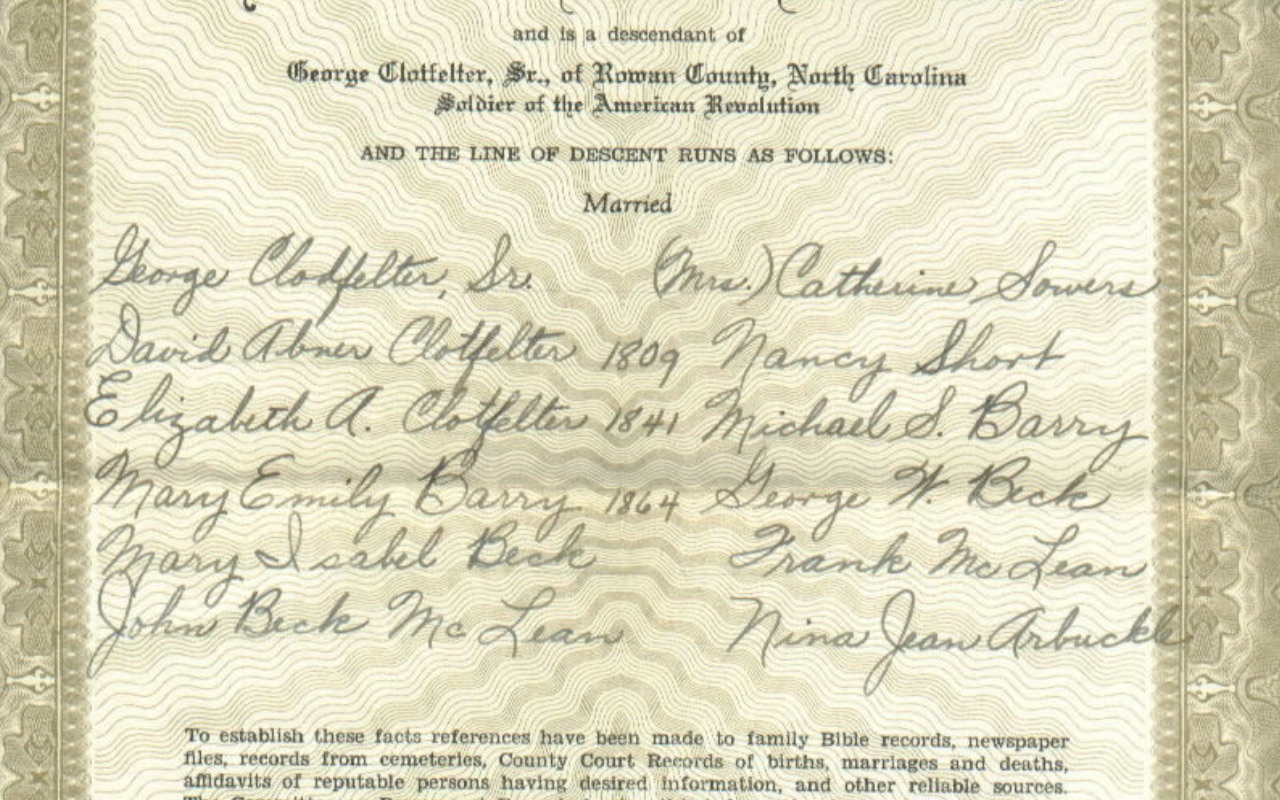 and is a descendant of
George Clotfelter, Sr., of Rowan County, North Carolina
Soldier of the American Revolution
AND THE LINE OF DESCENT RUNS AS FOLLOWS:
Married
George Clodfelter, Sr. (Mrs.) Catherine Sowers
David Abner Clotfelter 1809 Nancy Short
Elizabeth A. Clotfelter 1841 Michael S. Barry
Mary Emily Barry 1864 George W. Beck
Mary Isabel Beck Frank Mc Lean
John Beck Mc Lean Nina Jean Arbuckle
To establish these facts references have been made to family Bible records, newspaper
files, records from cemeteries, County Court Records of births, marriages and deaths,
affidavits of reputable persons having desired information, and other reliable sources.